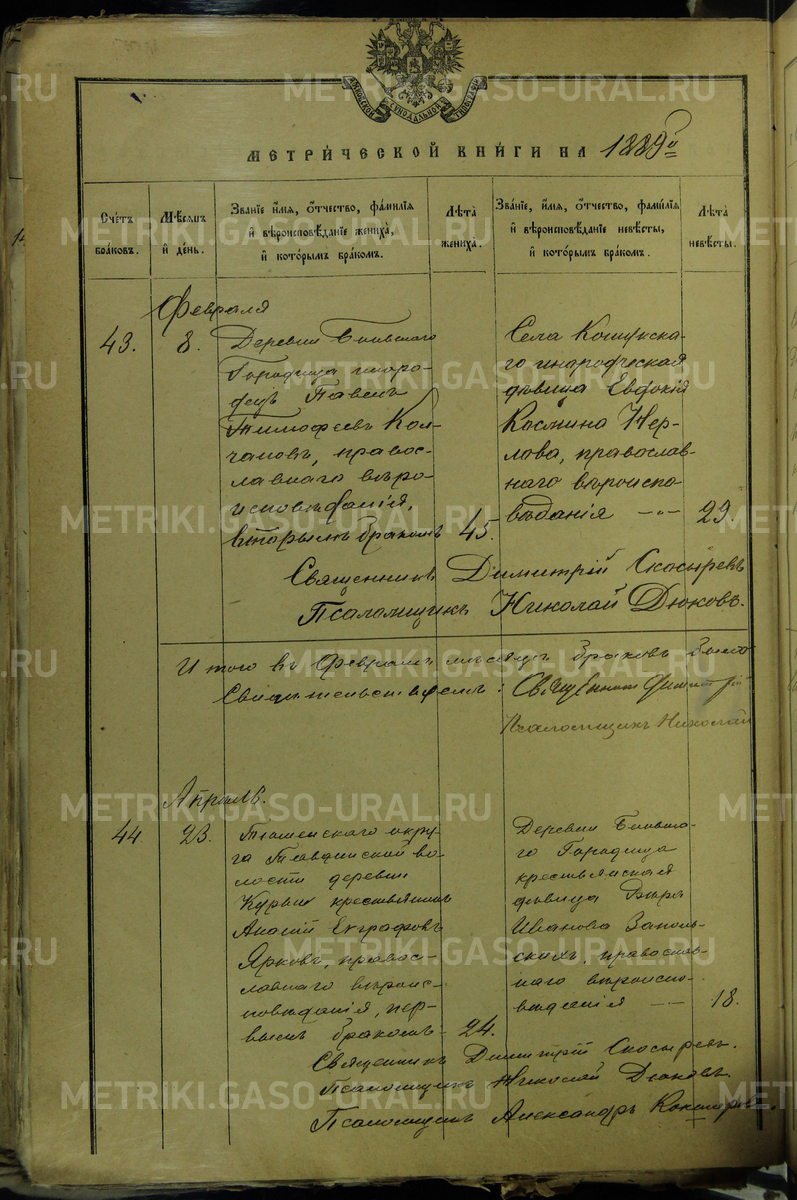 МЕТРИЧЕСКОЙ КНИГИ НА 1889й
Счетъ браковъ.
Мѣсяцъ и день.
Званіе, имя, отчество, фамилія и вѣроисповѣданіе жениха, и которымъ бракомъ.
Лѣта жениха.
Званіе, имя, отчество, фамилія и вѣроисповѣданіе невѣсты, и которымъ бракомъ.
Лѣта невѣсты.
Февраля
43.
8.
Деревни Бывшаго
Городища иноро-
децъ Павелъ
Тимофеевъ Кол-
чановъ, правос-
лавнаго вѣро-
исповѣданія,
вторымъ бракомъ
45.
Села Кошукска-
го инородческая
дѣвица Евдокія
Космина Нер-
лова, православ-
наго вѣроиспо-
вѣданія
29.
Священникъ Димитрій Скосыревъ
Псаломщикъ Николай Дюковъ.
Итого въ Февралѣ мѣсяцѣ браковъ было
Свидѣтельствуемъ: Священникъ Димитрій
Псаломщикъ Николай
Апрѣль.
44
23.
Тюменскаго окру-
га Тавдинской во-
лости деревни
крестьянинъ
Евграфовъ
Ярковъ, правос-
лавнаго вѣроис-
повѣданія, пер-
вымъ бракомъ
24.
Деревни Бывша-
го Городища
крестьянская
дѣвица Вѣра
Иванова Заполь-
скихъ, православ-
наго вѣроиспо-
вѣданія
18.
Священникъ Димитрій Скосыревъ.
Псаломщикъ Николай Дюковъ.
Псаломщикъ Александръ
METRIKI.GASO-URAL.RU